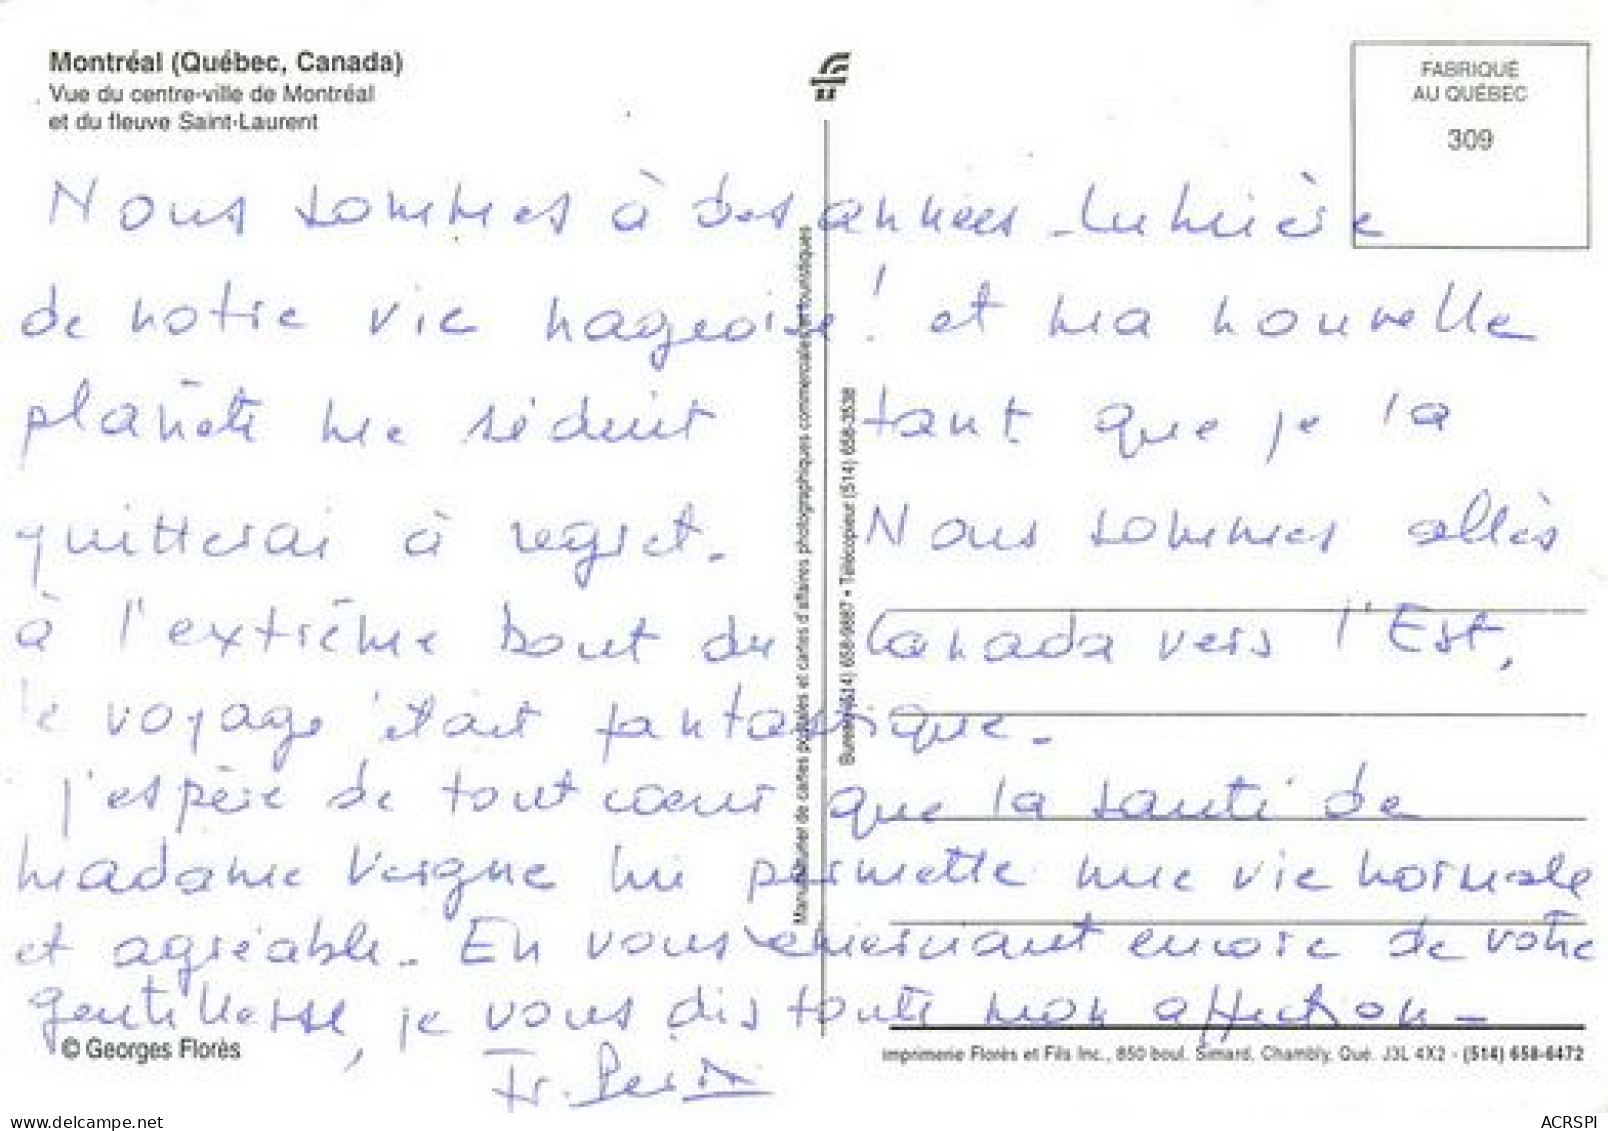 Montréal (Québec, Canada)
Vue du centre-ville de Montréal
et du fleuve Saint-Laurent
FABRIQUÉ
AU QUÉBEC
309
Nous sommes à des années-lumière
de notre vie nageoise ! et ma nouvelle
planète me séduit tant que je la
quitterai à regret. Nous sommes allés
à l'extrême bout du Canada vers l'Est,
le voyage était fantastique.
J'espère de tout cœur que la santé de
madame Vergne lui permette une vie normale
et agréable. En vous remerciant encore de votre
gentillesse, je vous dis toute mon affection -
Fr.
Manufacturier de cartes postales et cartes d'affaires photographiques commerciales et touristiques
Bureau (514) 658-9687 • Télécopieur (514) 658-3538
© Georges Florès
Imprimerie Florès et Fils Inc., 850 boul. Simard, Chambly, Qué. J3L 4X2 - (514) 658-6472
ACRSPI
delcampe.net